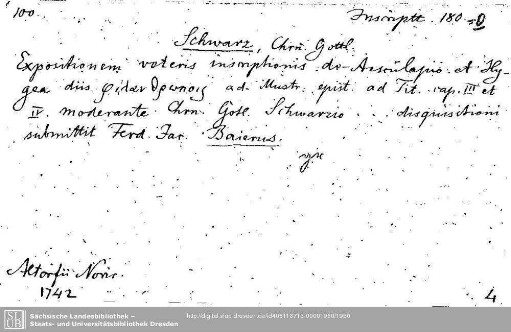 100
Inscriptt 180 = 0
Schwarz, Chrn. Gottl.
Expositionem veteris inscriptionis de Aesculapio et Hy-
gea diis φιλανθρωποις ad. illustr. epist. ad Tit. cap. III et
IV. moderante Chrn. Gotl. Schwarzio . . disquisitioni
submittit Ferd. Jac. Baierus.
Altorfii Noric.
1742
4
Sächsische Landesbibliothek –
Staats- und Universitätsbibliothek Dresden